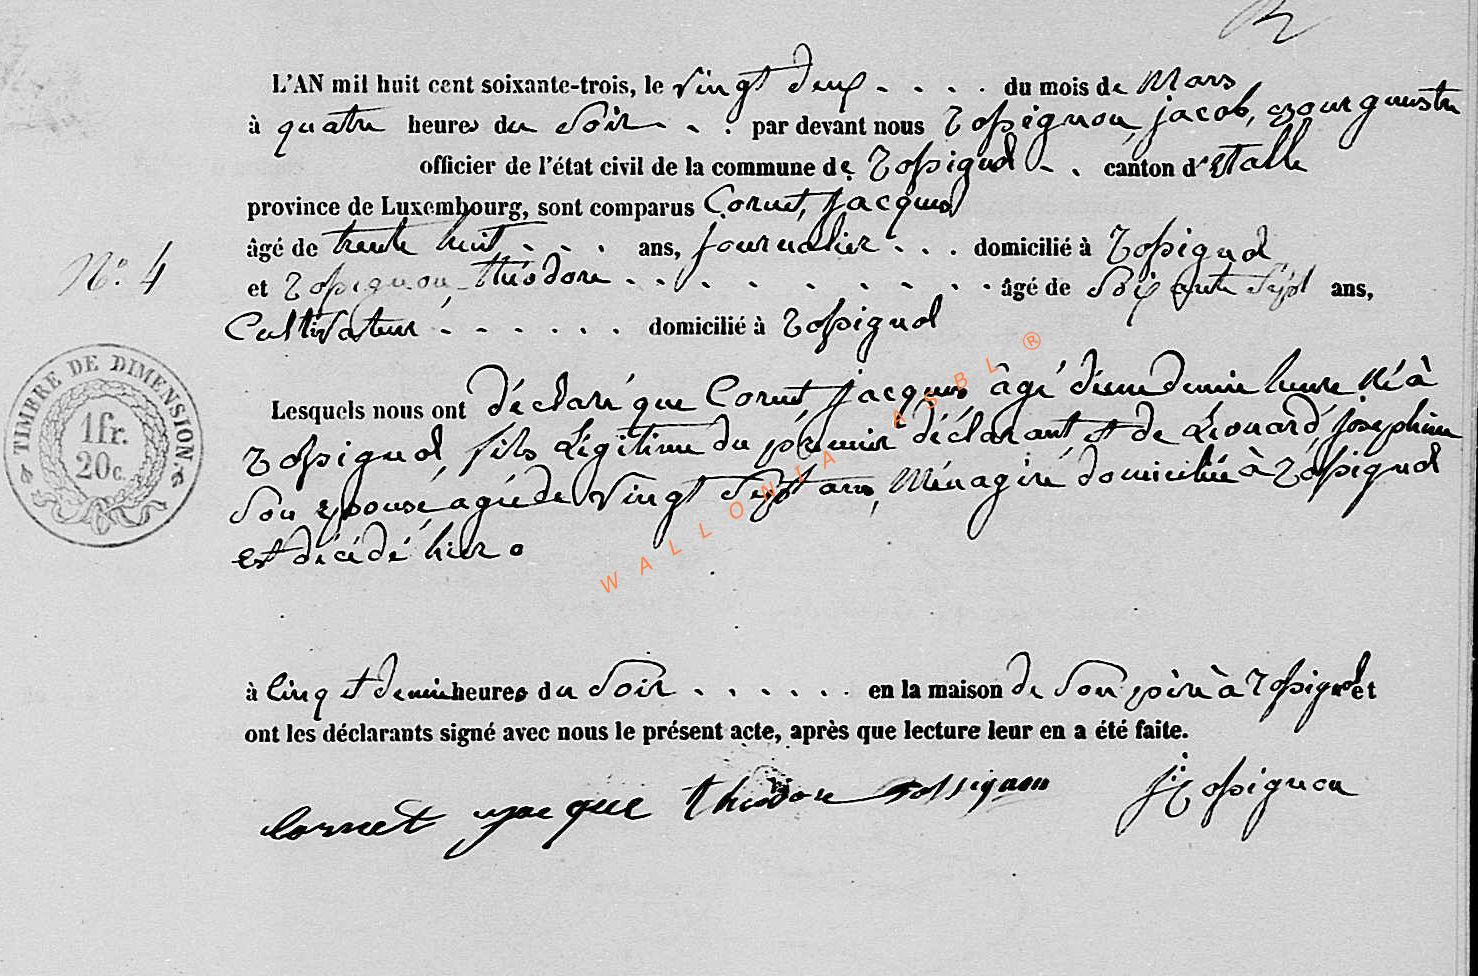 L'AN mil huit cent soixante-trois, le vingt deux - . . . du mois de Mars
à quatre heures du Soir - . . par devant nous Rossignon, jacob, Bourguestre
officier de l'état civil de la commune de Rossignol - . canton d'Etalle
province de Luxembourg, sont comparus Cornet, Jacques
âgé de trente huit . . . . ans, journalier . . . domicilié à Rossignol
N° 4
et Rossignon théodore . . . . . . . . . . âgé de Soixante Sept ans,
Cultivateur . . . . . . domicilié à Rossignol
TIMBRE DE DIMENSION.
1 fr.
20c.
Lesquels nous ont déclaré que Cornet Jacques âgé d'une demie heure Né à
Rossignol, fils Légitime du premier déclarant et de Léonard, Joséphine
Son épouse, agée de Vingt Sept ans, Ménagère domiciliée à Rossignol
est décédé hier.
WALLONIA ASBL ®
à Cinq et demie heures du Soir . . . . . . en la maison de Son père à Rossignol et
ont les déclarants signé avec nous le présent acte, après que lecture leur en a été faite.
Cornet jacque théodore Rossignon J: Rossignon